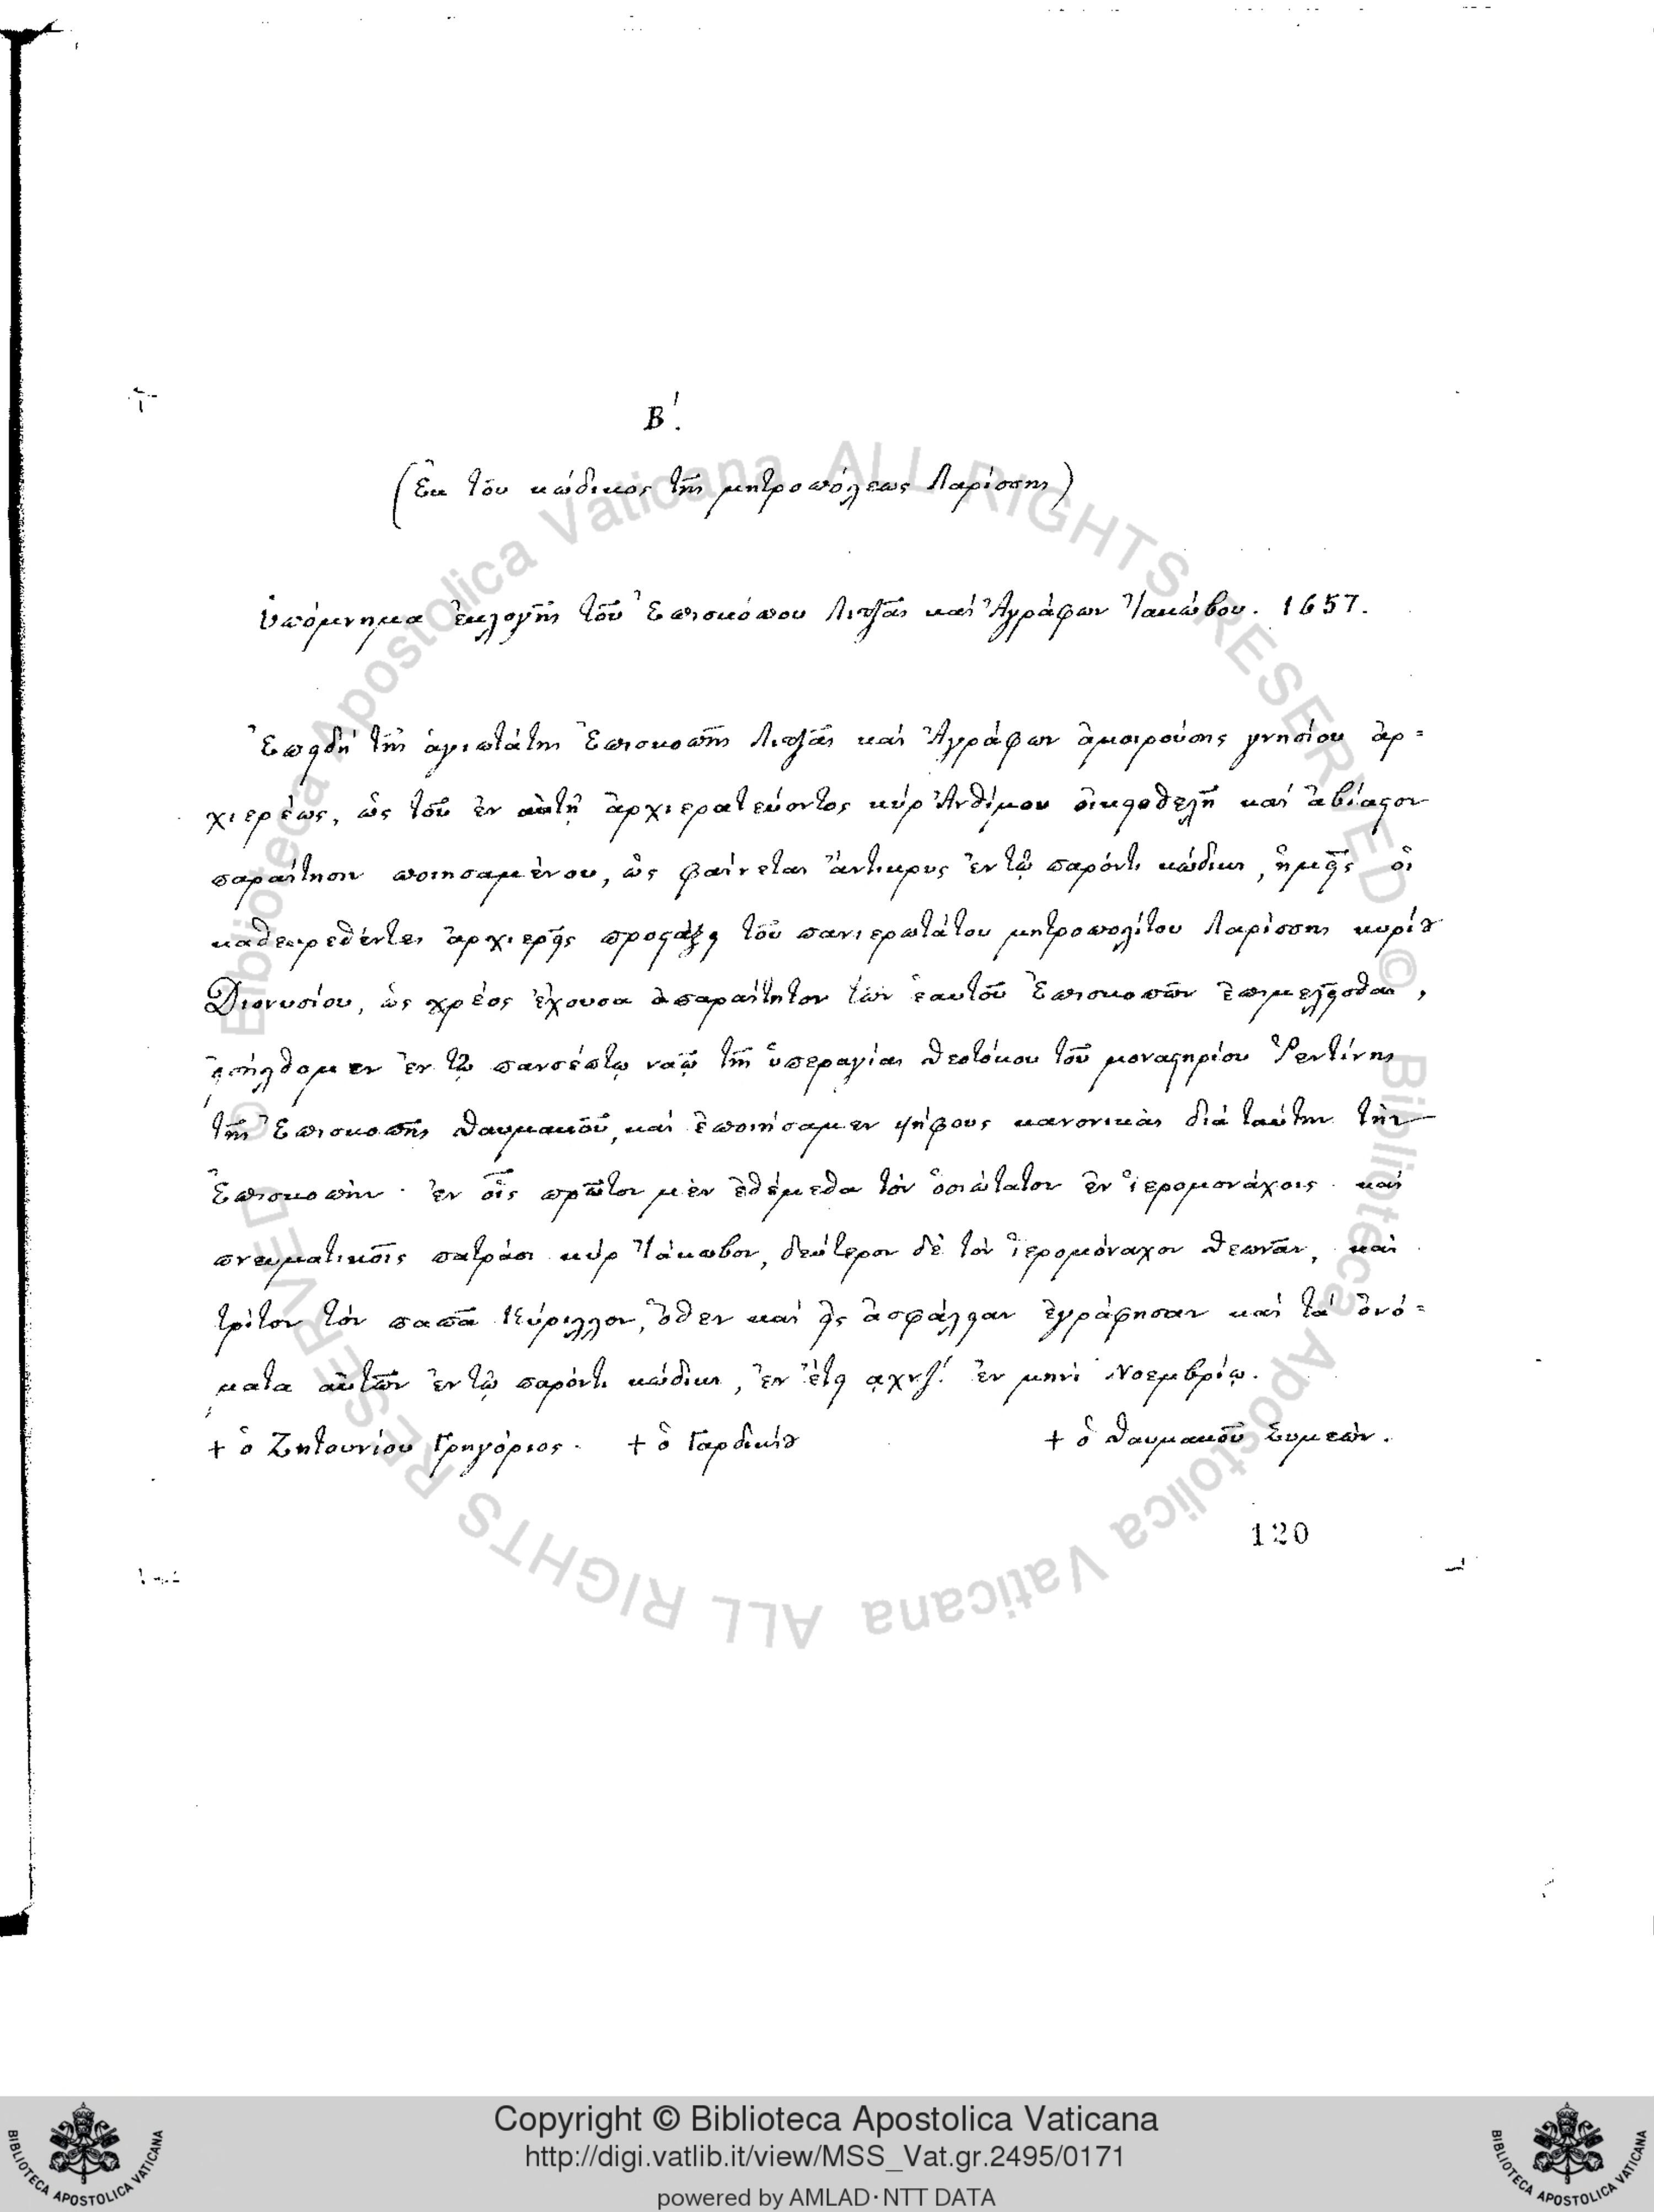 Β΄.
(Ἐκ τοῦ κώδικος τῆς μητροπόλεως Λαρίσσης)
Ὑπόμνημα ἐκλογῆς τοῦ Ἐπισκόπου Λιτζᾶς καὶ Ἀγράφων Ἰακώβου. 1657.
Ἐπειδὴ τῆς ἁγιωτάτης Ἐπισκοπῆς Λιτζᾶς καὶ Ἀγράφων ἀμοιρούσης γνησίου ἀρ=
χιερέως, ὡς τοῦ ἐν αὐτῇ ἀρχιερατεύοντος κύρ Ἀνθίμου οἰκειοθελῆ καὶ ἀβίαστον
παραίτησιν ποιησαμένου, ὡς φαίνεται ἄντικρυς ἐν τῷ παρόντι κώδικι, ἡμεῖς οἱ
καθευρεθέντες ἀρχιερεῖς προστάξει τοῦ πανιερωτάτου μητροπολίτου Λαρίσσης κυρίου
Διονυσίου, ὡς χρέος ἔχουσα ἀπαραίτητον τῶν ἑαυτοῦ Ἐπισκοπῶν ἐπιμελεῖσθαι,
εἰσήλθομεν ἐν τῷ πανσέπτῳ ναῷ τῆς ὑπεραγίας Θεοτόκου τοῦ μοναστηρίου Ῥεντίνης
τῆς Ἐπισκοπῆς Θαυμακοῦ, καὶ ἐποιήσαμεν ψήφους κανονικὰς διὰ ταύτην τὴν
Ἐπισκοπὴν· ἐν οἷς πρῶτον μὲν ἐθέμεθα τὸν ὁσιώτατον ἐν ἱερομονάχοις καὶ
πνευματικοῖς πατράσι κύρ Ἰάκωβον, δεύτερον δὲ τὸν ἱερομόναχον Θεωνᾶν, καὶ
τρίτον τὸν παπᾶ Κύριλλον, ὅθεν καὶ εἰς ἀσφάλειαν ἐγράφησαν καὶ τὰ ὀνό=
ματα αὐτῶν ἐν τῷ παρόντι κώδικι, ἐν ἔτει αχνζ΄. ἐν μηνὶ Νοεμβρίῳ.
+ ὁ Ζητουνίου Γρηγόριος. + ὁ Γαρδικίου + ὁ Θαυμακοῦ Συμεὼν.
120
© Biblioteca Apostolica Vaticana ALL RIGHTS RESERVED
© Biblioteca Apostolica Vaticana ALL RIGHTS RESERVED
Copyright © Biblioteca Apostolica Vaticana
http://digi.vatlib.it/view/MSS_Vat.gr.2495/0171
powered by AMLAD·NTT DATA
BIBLIOTECA APOSTOLICA VATICANA
BIBLIOTECA APOSTOLICA VATICANA